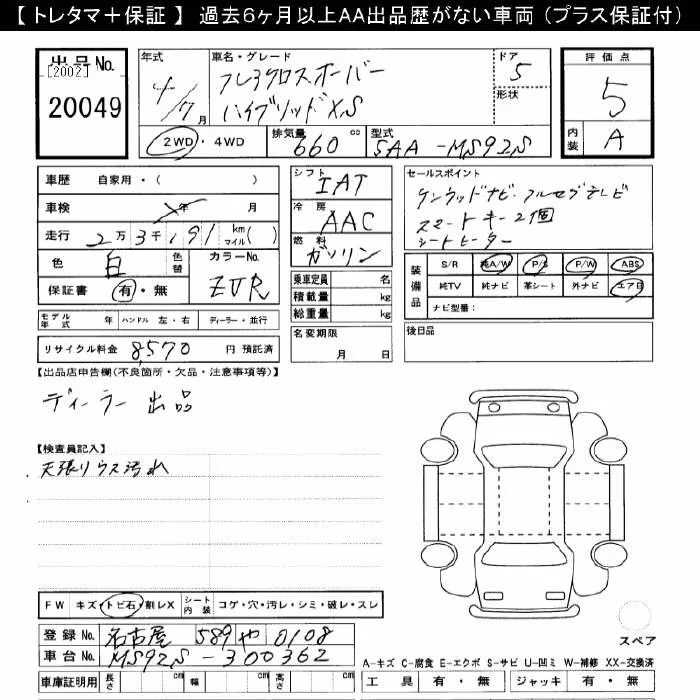 【トレタマ＋保証】 過去6ヶ月以上AA出品歴がない車両（プラス保証付）
出品No.
[2002]
20049
年式
4/7月
車名・グレード
フレアクロスオーバー
ハイブリッドXS
ドア
5
形状
2WD・4WD
排気量
660 cc
型式
5AA-MS92S
評価点
5
内装
A
車歴 自家用・( )
車検 年 月
走行 2万3千191 km マイル( )
色 白 色替
カラーNo.
ZVR
保証書 有・無
モデル年式 年 ハンドル 左・右 ディーラー・並行
リサイクル料金 8,570 円 預託済
シフト
IAT
冷房
AAC
燃料
ガソリン
乗車定員 名
積載量 kg
総重量 kg
名変期限
月 日
セールスポイント
ケンウッドナビ・フルセグテレビ
スマートキー2個
シートヒーター
装備品
S/R 純A/W P/S P/W ABS
純TV 純ナビ 革シート 外ナビ エアB
ナビ型番:
後日品
【出品店申告欄(不良箇所・欠品・注意事項等)】
ディーラー出品
【検査員記入】
天張りウス汚れ
FW キズ・トビ石・割レX シート内装 コゲ・穴・汚レ・シミ・破レ・スレ
登録No. 名古屋 589 や 0108
車台No. MS92S-300362
車庫証明用 長さ cm 幅 cm 高さ cm
スペア
A-キズ C-腐食 E-エクボ S-サビ U-凹ミ W-補修 XX-交換済
工具 有・無 ジャッキ 有・無